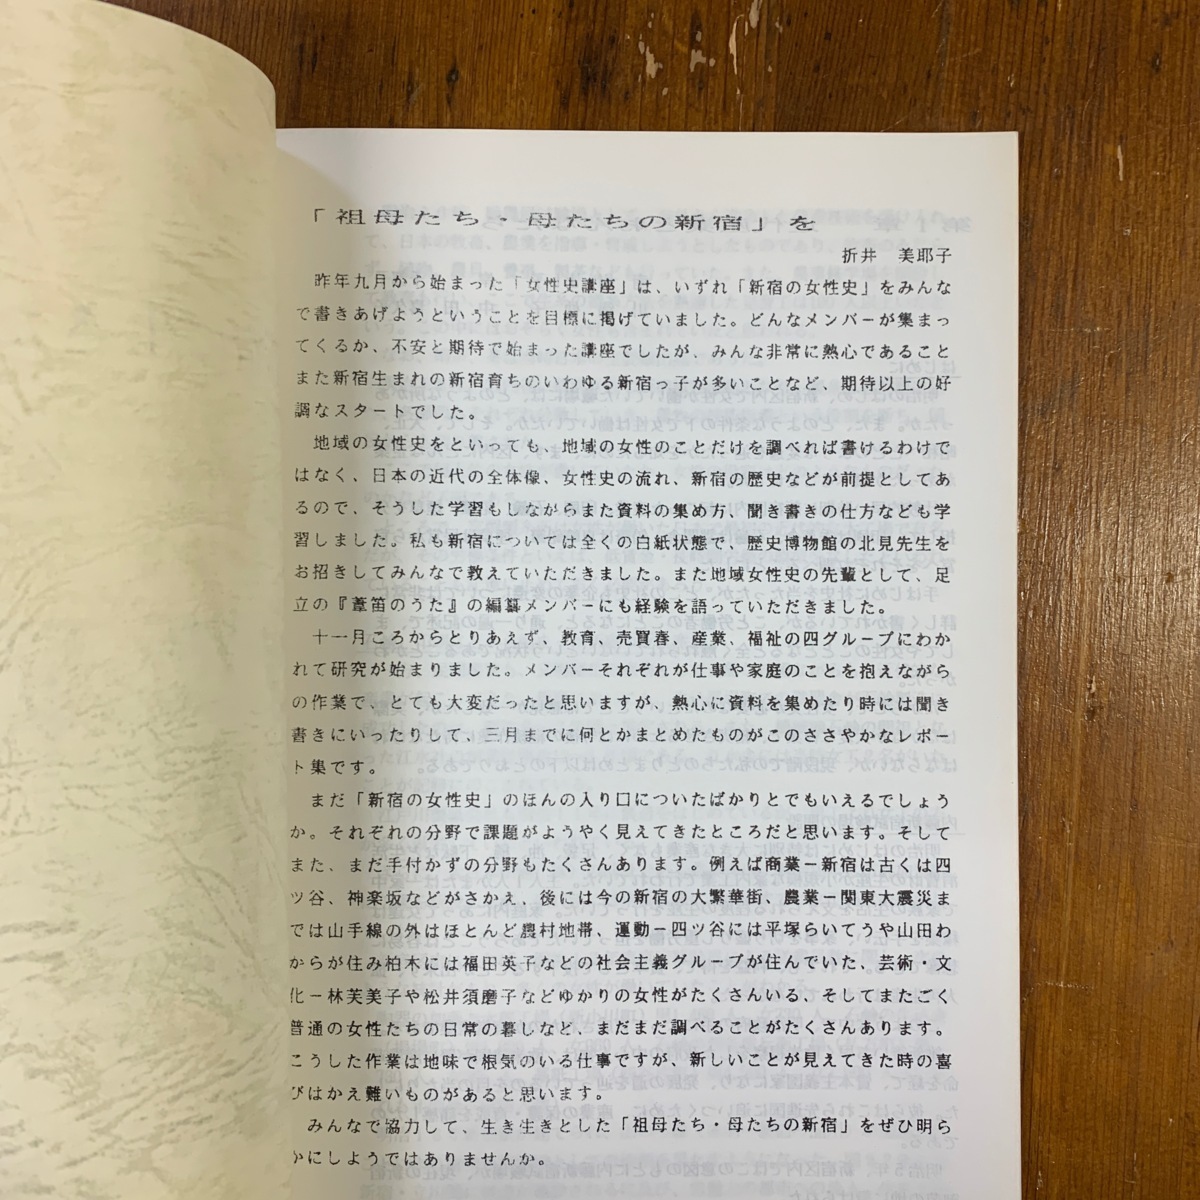 「祖母たち・母たちの新宿」を
折井　美耶子
昨年九月から始まった「女性史講座」は、いずれ「新宿の女性史」をみんな
で書きあげようということを目標に掲げていました。どんなメンバーが集まっ
てくるか、不安と期待で始まった講座でしたが、みんな非常に熱心であること
また新宿生まれの新宿育ちのいわゆる新宿っ子が多いことなど、期待以上の好
調なスタートでした。
地域の女性史をといっても、地域の女性のことだけを調べれば書けるわけで
はなく、日本の近代の全体像、女性史の流れ、新宿の歴史などが前提としてあ
るので、そうした学習もしながらまた資料の集め方、聞き書きの仕方なども学
習しました。私も新宿については全くの白紙状態で、歴史博物館の北見先生を
お招きしてみんなで教えていただきました。また地域女性史の先輩として、足
立の『葦笛のうた』の編纂メンバーにも経験を語っていただきました。
十一月ころからとりあえず、教育、売買春、産業、福祉の四グループにわか
れて研究が始まりました。メンバーそれぞれが仕事や家庭のことを抱えながら
の作業で、とても大変だったと思いますが、熱心に資料を集めたり時には聞き
書きにいったりして、三月までに何とかまとめたものがこのささやかなレポー
ト集です。
まだ「新宿の女性史」のほんの入り口についたばかりとでもいえるでしょう
か。それぞれの分野で課題がようやく見えてきたところだと思います。そして
また、まだ手付かずの分野もたくさんあります。例えば商業－新宿は古くは四
ツ谷、神楽坂などがさかえ、後には今の新宿の大繁華街、農業－関東大震災ま
では山手線の外はほとんど農村地帯、運動－四ツ谷には平塚らいてうや山田わ
からが住み柏木には福田英子などの社会主義グループが住んでいた、芸術・文
化－林芙美子や松井須磨子などゆかりの女性がたくさんいる、そしてまたごく
普通の女性たちの日常の暮しなど、まだまだ調べることがたくさんあります。
こうした作業は地味で根気のいる仕事ですが、新しいことが見えてきた時の喜
びはかえ難いものがあると思います。
みんなで協力して、生き生きとした「祖母たち・母たちの新宿」をぜひ明ら
かにしようではありませんか。